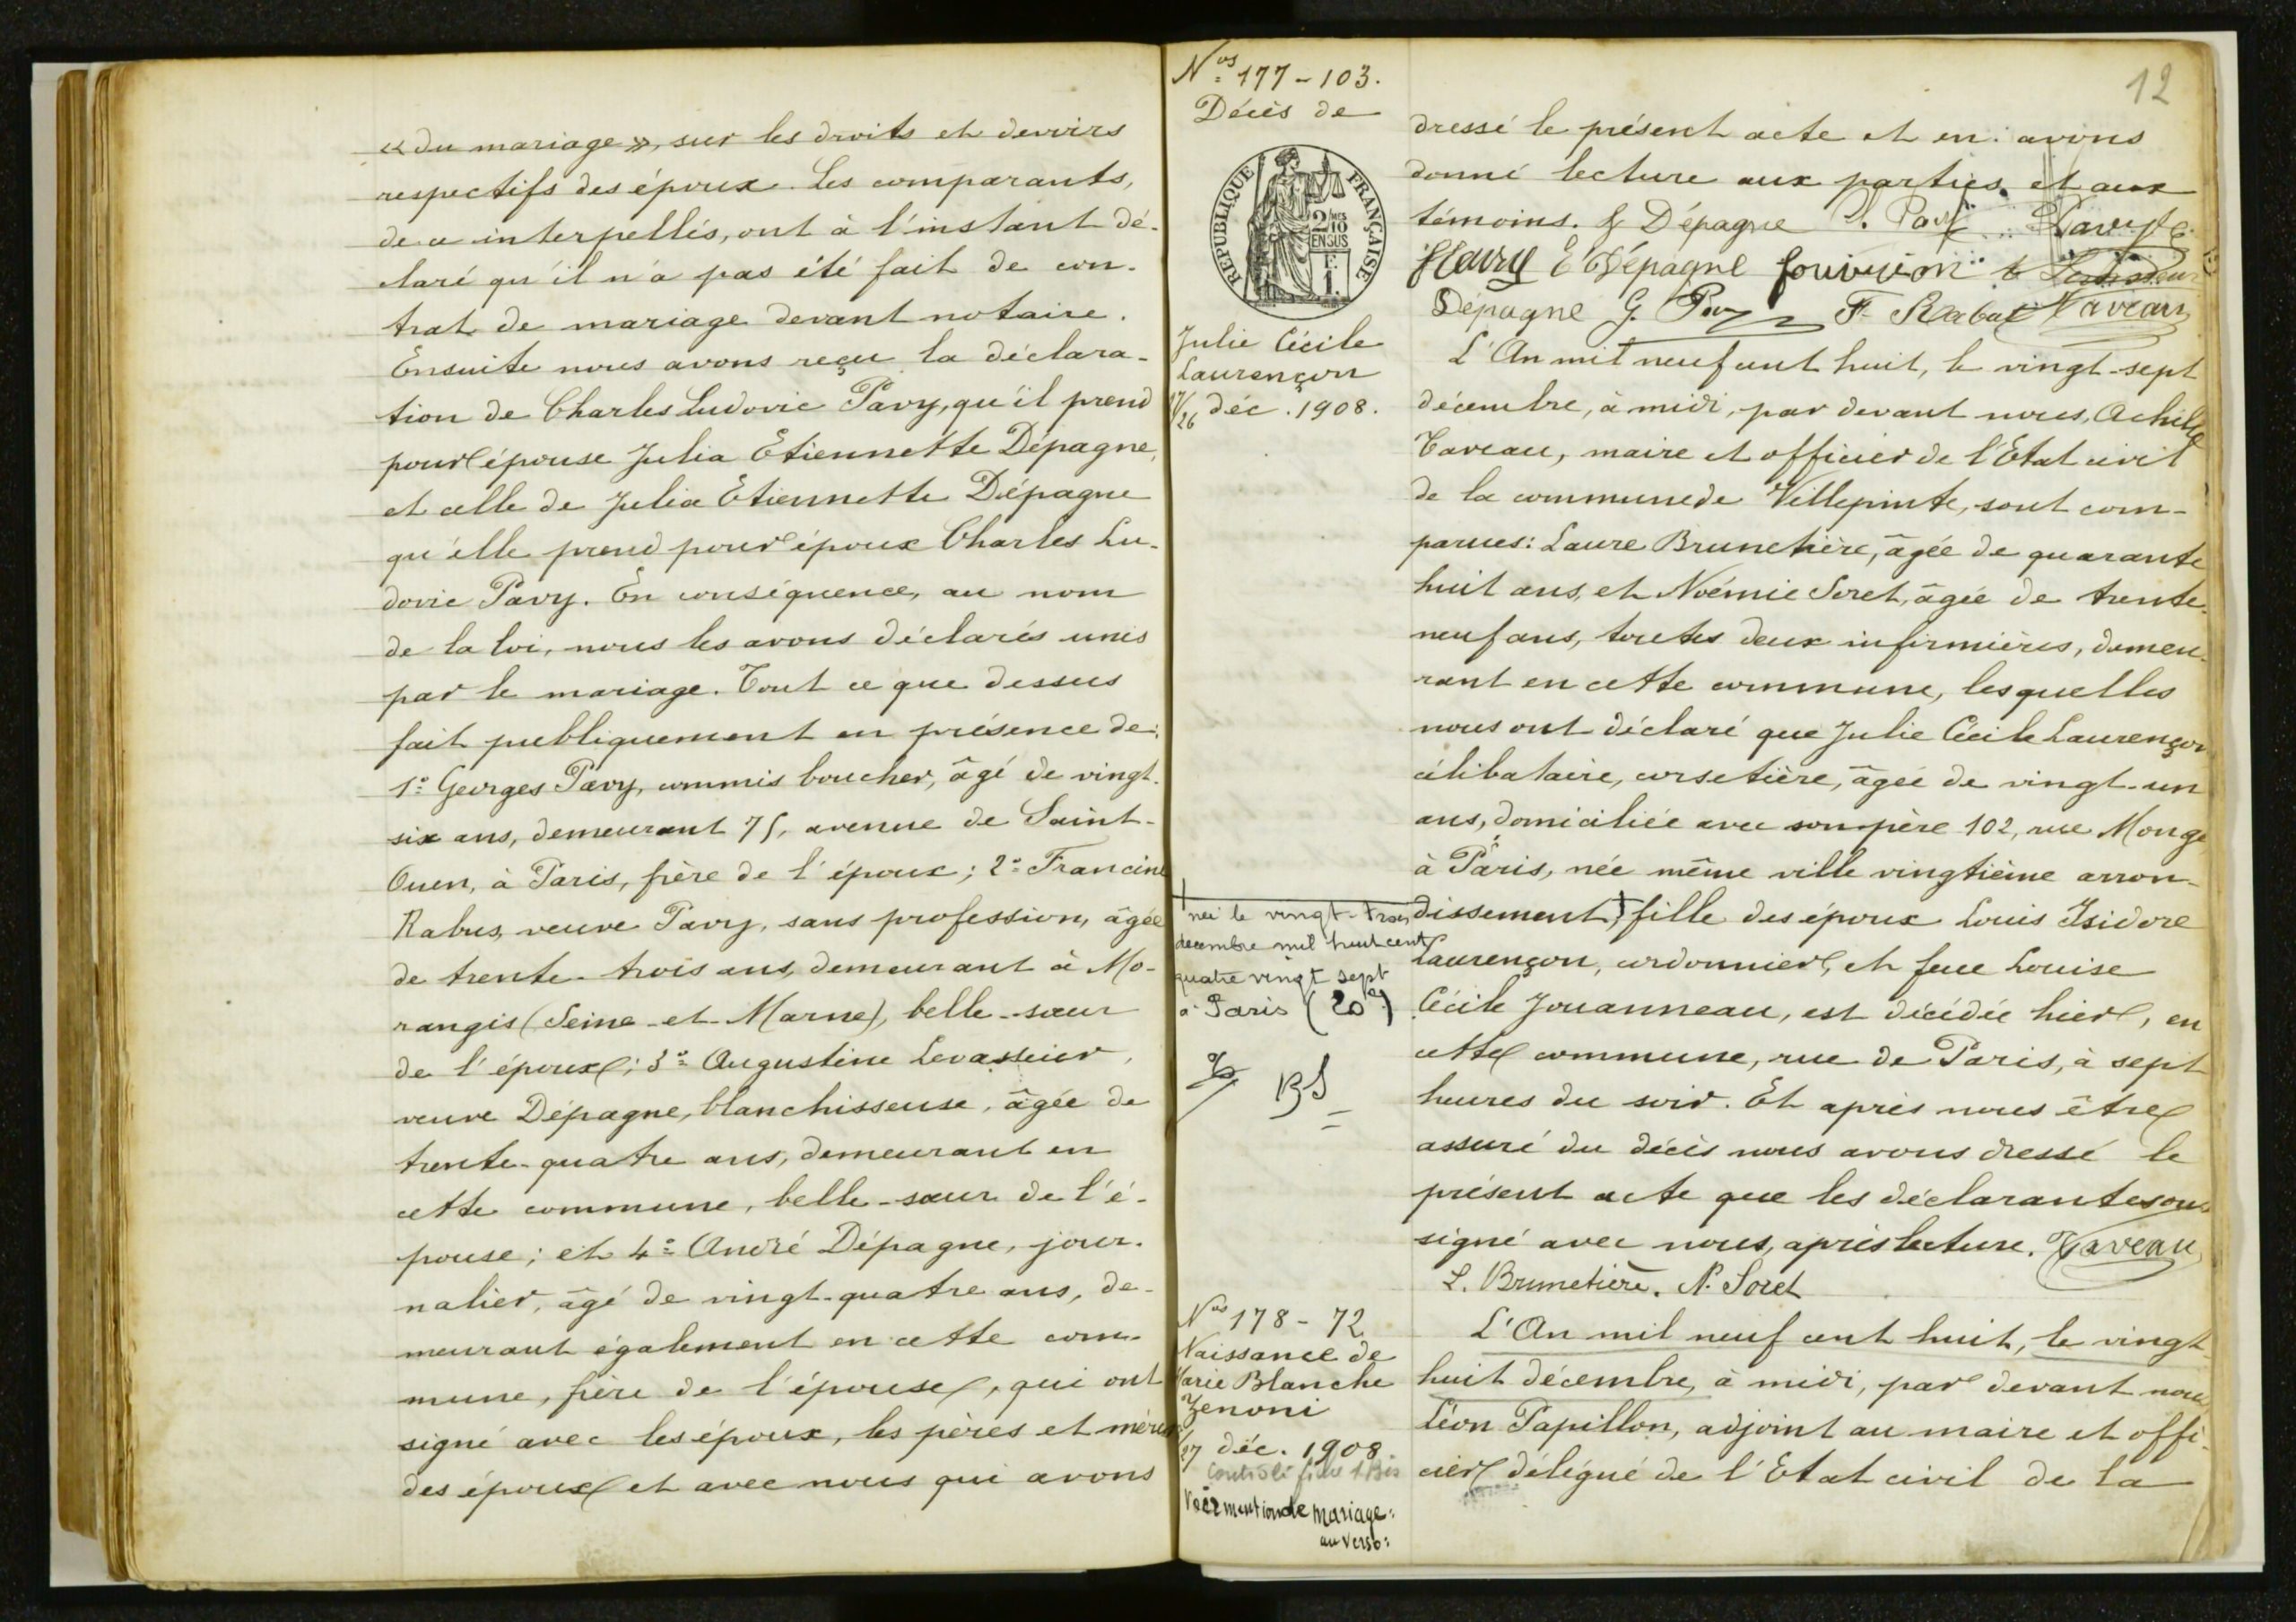 « du mariage », sur les droits et devoirs
respectifs des époux. Les comparants,
de ce interpellés, ont à l'instant dé-
claré qu'il n'a pas été fait de con-
trat de mariage devant notaire.
Ensuite nous avons reçu la déclara-
tion de Charles Ludovic Pavy, qu'il prend
pour épouse Julia Etiennette Dépagne,
et celle de Julia Etiennette Dépagne
qu'elle prend pour époux Charles Lu-
dovic Pavy. En conséquence, au nom
de la loi, nous les avons déclarés unis
par le mariage. Tout ce que dessus
fait publiquement en présence de:
1º Georges Pavy, commis boucher, âgé de vingt-
six ans, demeurant 75, avenue de Saint-
Ouen, à Paris, frère de l'époux; 2º Francine
Rabus, veuve Pavy, sans profession, âgée
de trente-trois ans, demeurant à Mo-
rangis (Seine-et-Marne), belle-sœur
de l'époux; 3º Augustine Levasseur,
veuve Dépagne, blanchisseuse, âgée de
trente-quatre ans, demeurant en
cette commune, belle-sœur de l'é-
pouse; et 4º André Dépagne, jour-
nalier, âgé de vingt-quatre ans, de-
meurant également en cette com-
mune, frère de l'épouse, qui ont
signé avec les époux, les pères et mères
des époux et avec nous qui avons
12
dressé le présent acte et en avons
donné lecture aux parties et aux
témoins. J Dépagne Pavy
Fleury E Dépagne
Dépagne G. Pavy F. Rabus Taveau
Nos 177-103.
Décès de
REPUBLIQUE FRANÇAISE
2/10 EN SUS
F. 1.
Julie Cécile
Laurençon
26 déc. 1908.
L'An mil neuf cent huit, le vingt-sept
décembre, à midi, par devant nous, Achille
Taveau, maire et officier de l'Etat civil
de la commune de Villepinte, sont com-
parues: Laure Brunetière, âgée de quarante
huit ans, et Noémie Soret, âgée de trente-
neuf ans, toutes deux infirmières, demeu-
rant en cette commune, lesquelles
nous ont déclaré que Julie Cécile Laurençon
célibataire, corsetière, âgée de vingt-un
ans, domiciliée avec son père 102, rue Monge
à Paris, née même ville vingtième arron-
dissement, † fille des époux Louis Isidore
Laurençon, cordonnier, et feue Louise
Cécile Jouanneau, est décédée hier, en
cette commune, rue de Paris, à sept
heures du soir. Et après nous être
assuré du décès nous avons dressé le
présent acte que les déclarantes ont
signé avec nous, après lecture. Taveau
L. Brunetière. N. Soret
† née le vingt-trois
décembre mil huit cent
quatre vingt sept
à Paris (20e)
BS
Nos 178-72
Naissance de
Marie Blanche
Zenoni
27 déc. 1908
Voir mention de mariage
au verso:
L'An mil neuf cent huit, le vingt
huit décembre, à midi, par devant nous
Léon Papillon, adjoint au maire et offi-
cier délégué de l'Etat civil de la